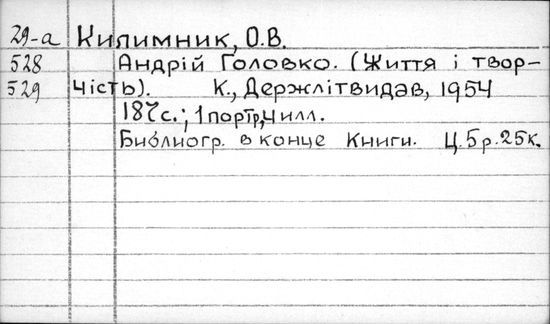 29-а Килимник, О.В.
528 Андрій Головко. (Життя і твор-
529 чість). К., Держлітвидав, 1954
187с.; 1 портр, 4 илл.
Библиогр. в конце книги. Ц.5р.25к.